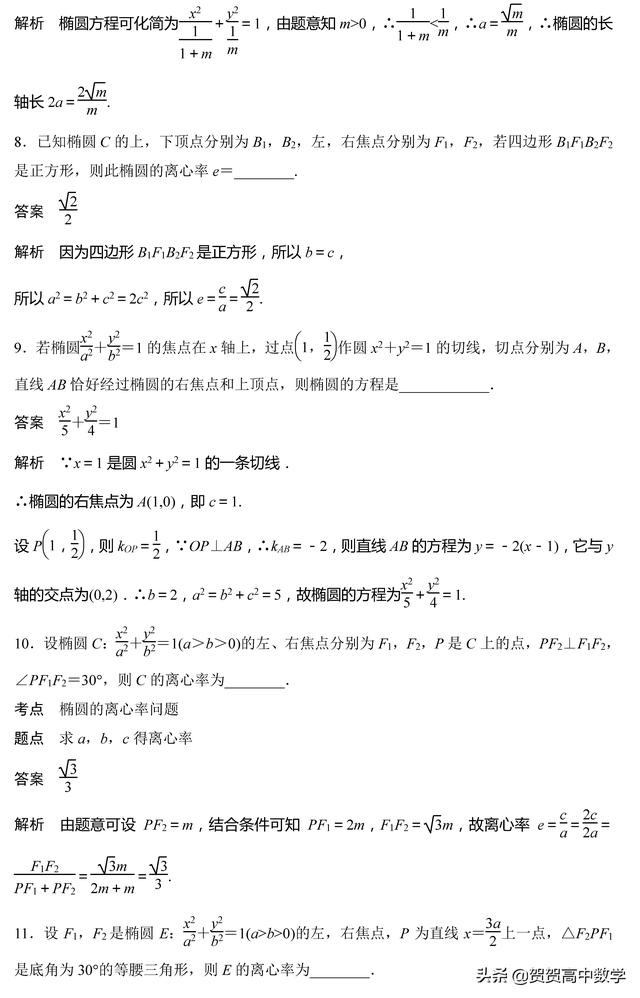 解析　椭圆方程可化简为x²/(1/(1+m))+y²/(1/m)=1，由题意知 m>0，∴1/(1+m)<1/m，∴a=√m/m，∴椭圆的长
轴长 2a=2√m/m.
8．已知椭圆 C 的上，下顶点分别为 B₁，B₂，左，右焦点分别为 F₁，F₂，若四边形 B₁F₁B₂F₂
是正方形，则此椭圆的离心率 e=________.
答案　√2/2
解析　因为四边形 B₁F₁B₂F₂ 是正方形，所以 b=c，
所以 a²=b²+c²=2c²，所以 e=c/a=√2/2.
9．若椭圆x²/a²+y²/b²=1 的焦点在 x 轴上，过点(1，1/2)作圆 x²+y²=1 的切线，切点分别为 A，B，
直线 AB 恰好经过椭圆的右焦点和上顶点，则椭圆的方程是____________.
答案　x²/5+y²/4=1
解析　∵x=1 是圆 x²+y²=1 的一条切线．
∴椭圆的右焦点为 A(1,0)，即 c=1.
设 P(1，1/2)，则 kOP=1/2，∵OP⊥AB，∴kAB=－2，则直线 AB 的方程为 y=－2(x－1)，它与 y
轴的交点为(0,2)．∴b=2，a²=b²+c²=5，故椭圆的方程为x²/5+y²/4=1.
10．设椭圆 C：x²/a²+y²/b²=1(a＞b＞0)的左、右焦点分别为 F₁，F₂，P 是 C 上的点，PF₂⊥F₁F₂，
∠PF₁F₂=30°，则 C 的离心率为________.
考点　椭圆的离心率问题
题点　求 a，b，c 得离心率
答案　√3/3
解析　由题意可设 PF₂=m，结合条件可知 PF₁=2m，F₁F₂=√3m，故离心率 e=c/a=2c/2a=
F₁F₂/(PF₁+PF₂)=√3m/(2m+m)=√3/3.
11．设 F₁，F₂ 是椭圆 E：x²/a²+y²/b²=1(a>b>0)的左，右焦点，P 为直线 x=3a/2上一点，△F₂PF₁
是底角为 30°的等腰三角形，则 E 的离心率为________.
头条 @贺贺高中数学